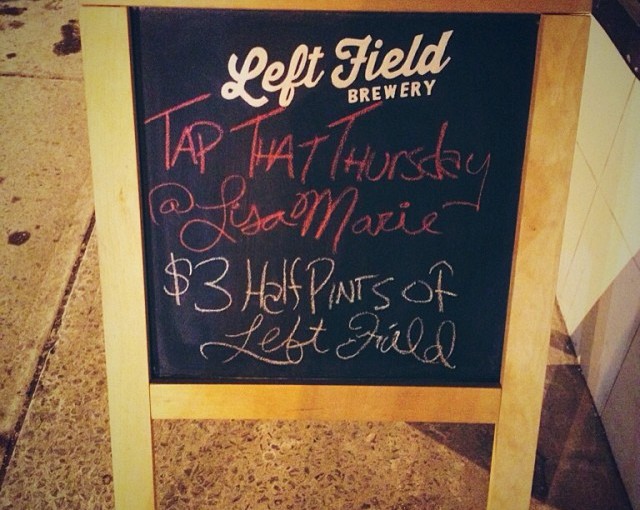 Left Field
BREWERY
TAP THAT THursday
@ Lisa Marie
$3 Half PINTS OF
Left Field